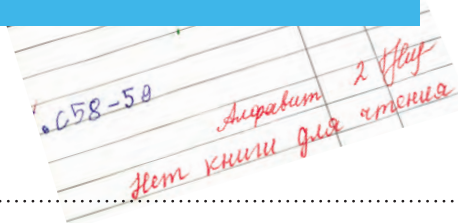 С58-59
Алфавит 2
Нет книги для чтения